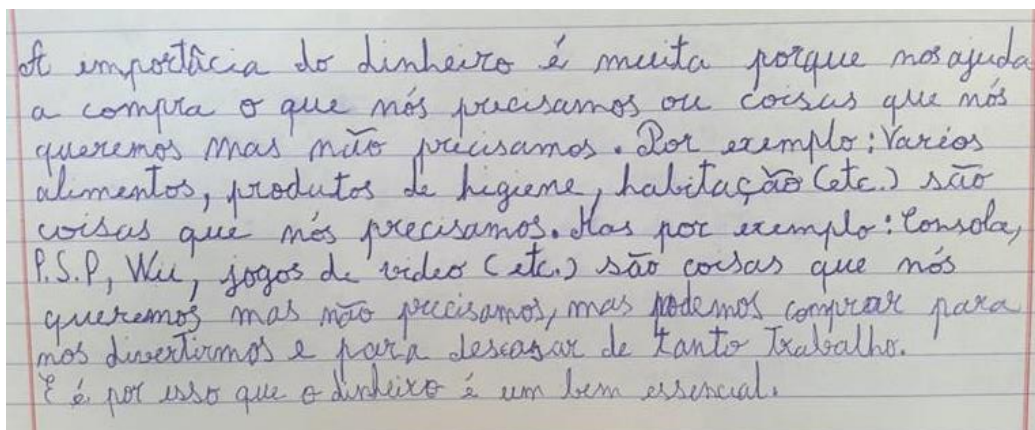 A importâcia do dinheiro é muita porque nos ajuda
a compra o que nós precisamos ou coisas que nós
queremos mas não precisamos. Por exemplo: Varios
alimentos, produtos de higiene, habitação (etc.) são
coisas que nós precisamos. Mas por exemplo: Consola,
P.S.P, Wii, jogos de video (etc.) são coisas que nós
queremos mas não precisamos, mas podemos comprar para
nos divertirmos e para descasar de tanto trabalho.
E é por isso que o dinheiro é um bem essencial.